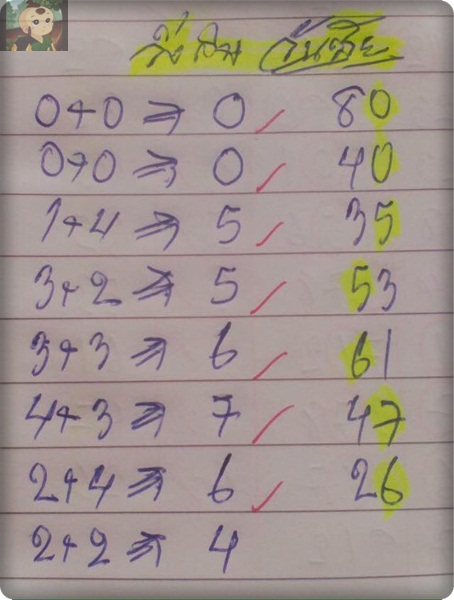 วิ่งบน
0+0 ⇒ 0 ✓ 80
0+0 ⇒ 0 ✓ 40
1+4 ⇒ 5 ✓ 35
3+2 ⇒ 5 ✓ 53
3+3 ⇒ 6 ✓ 61
4+3 ⇒ 7 ✓ 47
2+4 ⇒ 6 ✓ 26
2+2 ⇒ 4